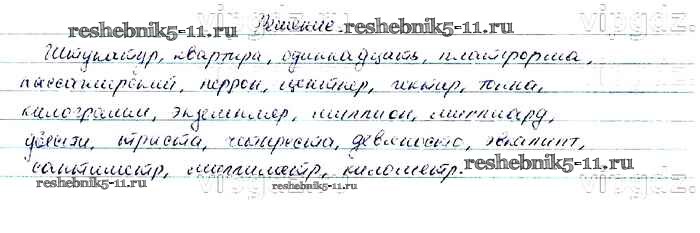 Решение. reshebnik5-11.ru
reshebnik5-11.ru
Штукатур, квартира, одиннадцать, платформа,
пассажирский, перрон, центнер, гектар, тонна,
килограмм, экземпляр, миллион, миллиард,
двести, триста, четыреста, девяносто,
сантиметр, миллиметр, километр.
reshebnik5-11.ru
reshebnik5-11.ru
reshebnik5-11.ru
vipgdz